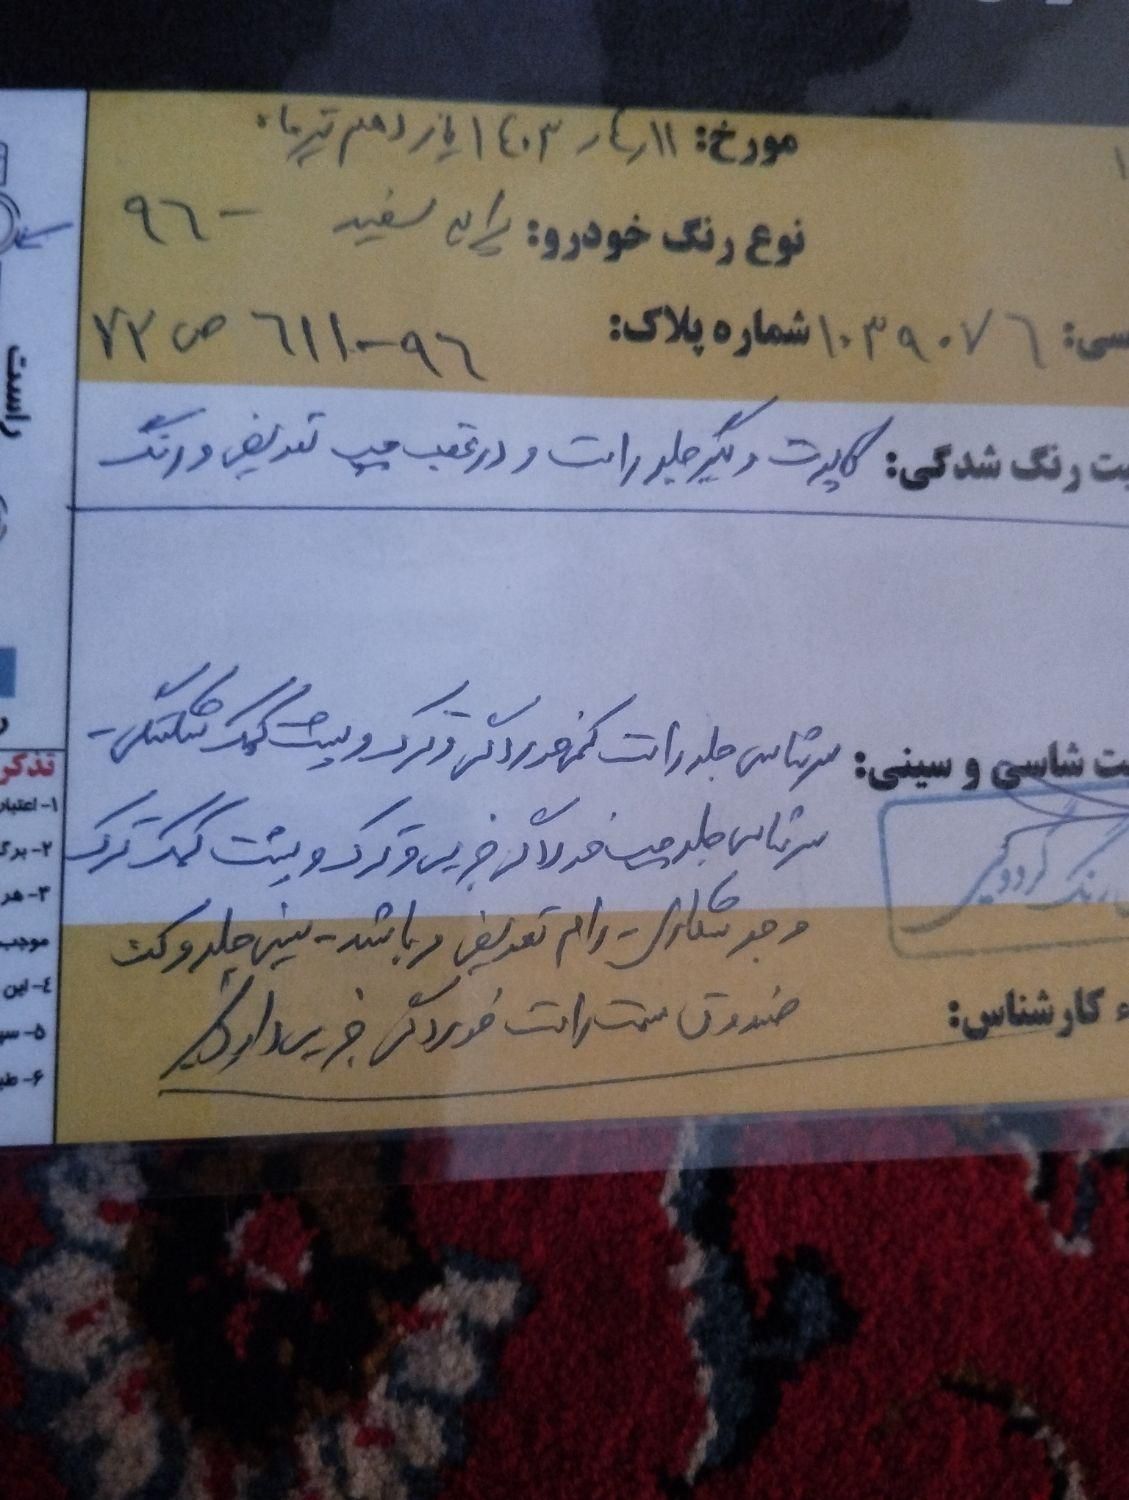 مورخ: ۱۱ / ۴ / ۱۴۰۳ یازدهم تیرماه
نوع رنگ خودرو: سفید - ۹۶
سی: ۱۰۳۹۰۷۶ شماره پلاک: ۹۶ - ۶۱۱ ص ۷۲
یت رنگ شدگی: کاپوت و گلگیر جلو راست و درعقب چپ تعویض و رنگ
ت شاسی و سینی: سرشاسی جلو راست خوردگی و ترک و پشت کمک شکستگی -
سرشاسی جلو چپ خوردگی جزیی و ترک و پشت کمک ترک
و جوشکاری - رام تعویض میباشد - سینی جلو و کف
صندوق سمت راست خوردگی جزیی دارد
رنگ گردویی
ء کارشناس:
راست
تذکر
۱- اعتبار
۲- برگ
۳- هر
موجب
۴- این
۵- سو
۶- طب